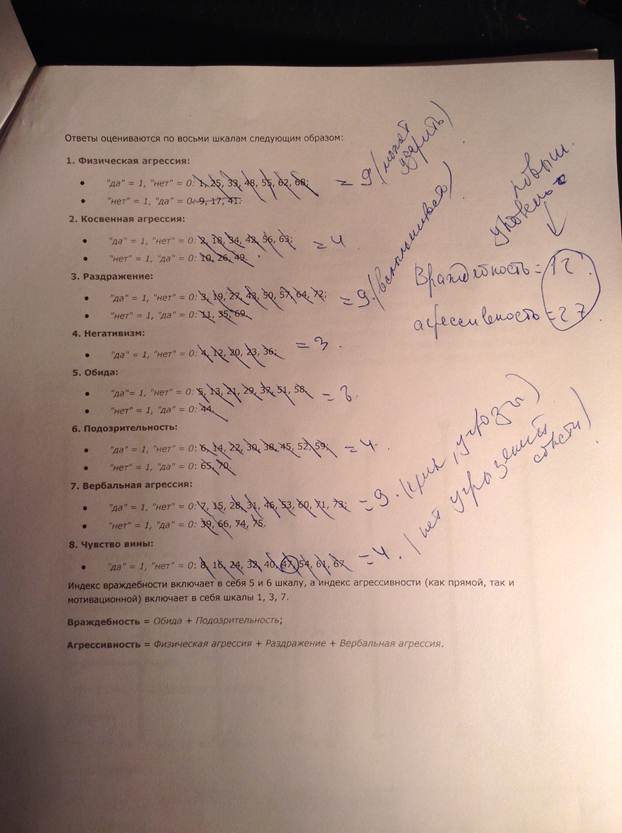 Ответы оцениваются по восьми шкалам следующим образом:
1. Физическая агрессия:
• "да" = 1, "нет" = 0: 1, 25, 33, 48, 55, 62, 68; = 9 (может ударить)
• "нет" = 1, "да" = 0: 9, 17, 41.
2. Косвенная агрессия:
• "да" = 1, "нет" = 0: 2, 18, 34, 42, 56, 63; = 4
• "нет" = 1, "да" = 0: 10, 26, 49.
3. Раздражение:
• "да" = 1, "нет" = 0: 3, 19, 27, 43, 50, 57, 64, 72; = 9.
• "нет" = 1, "да" = 0: 11, 35, 69.
повыш.
уровень
Враждебность = 12
агрессивность = 27
4. Негативизм:
• "да" = 1, "нет" = 0: 4, 12, 20, 23, 36; = 3.
5. Обида:
• "да"= 1, "нет" = 0: 5, 13, 21, 29, 37, 51, 58.
• "нет" = 1, "да" = 0: 44.
6. Подозрительность:
• "да" = 1, "нет" = 0: 6, 14, 22, 30, 38, 45, 52, 59; = 4.
• "нет" = 1, "да" = 0: 65, 70.
7. Вербальная агрессия:
• "да" = 1, "нет" = 0: 7, 15, 28, 31, 46, 53, 60, 71, 73; = 9. (крик, угрозы)
• "нет" = 1, "да" = 0: 39, 66, 74, 75.
8. Чувство вины:
• "да" = 1, "нет" = 0: 8, 16, 24, 32, 40, 47, 54, 61, 67. = 4. (нет угрызений совести)
Индекс враждебности включает в себя 5 и 6 шкалу, а индекс агрессивности (как прямой, так и
мотивационной) включает в себя шкалы 1, 3, 7.
Враждебность = Обида + Подозрительность;
Агрессивность = Физическая агрессия + Раздражение + Вербальная агрессия.